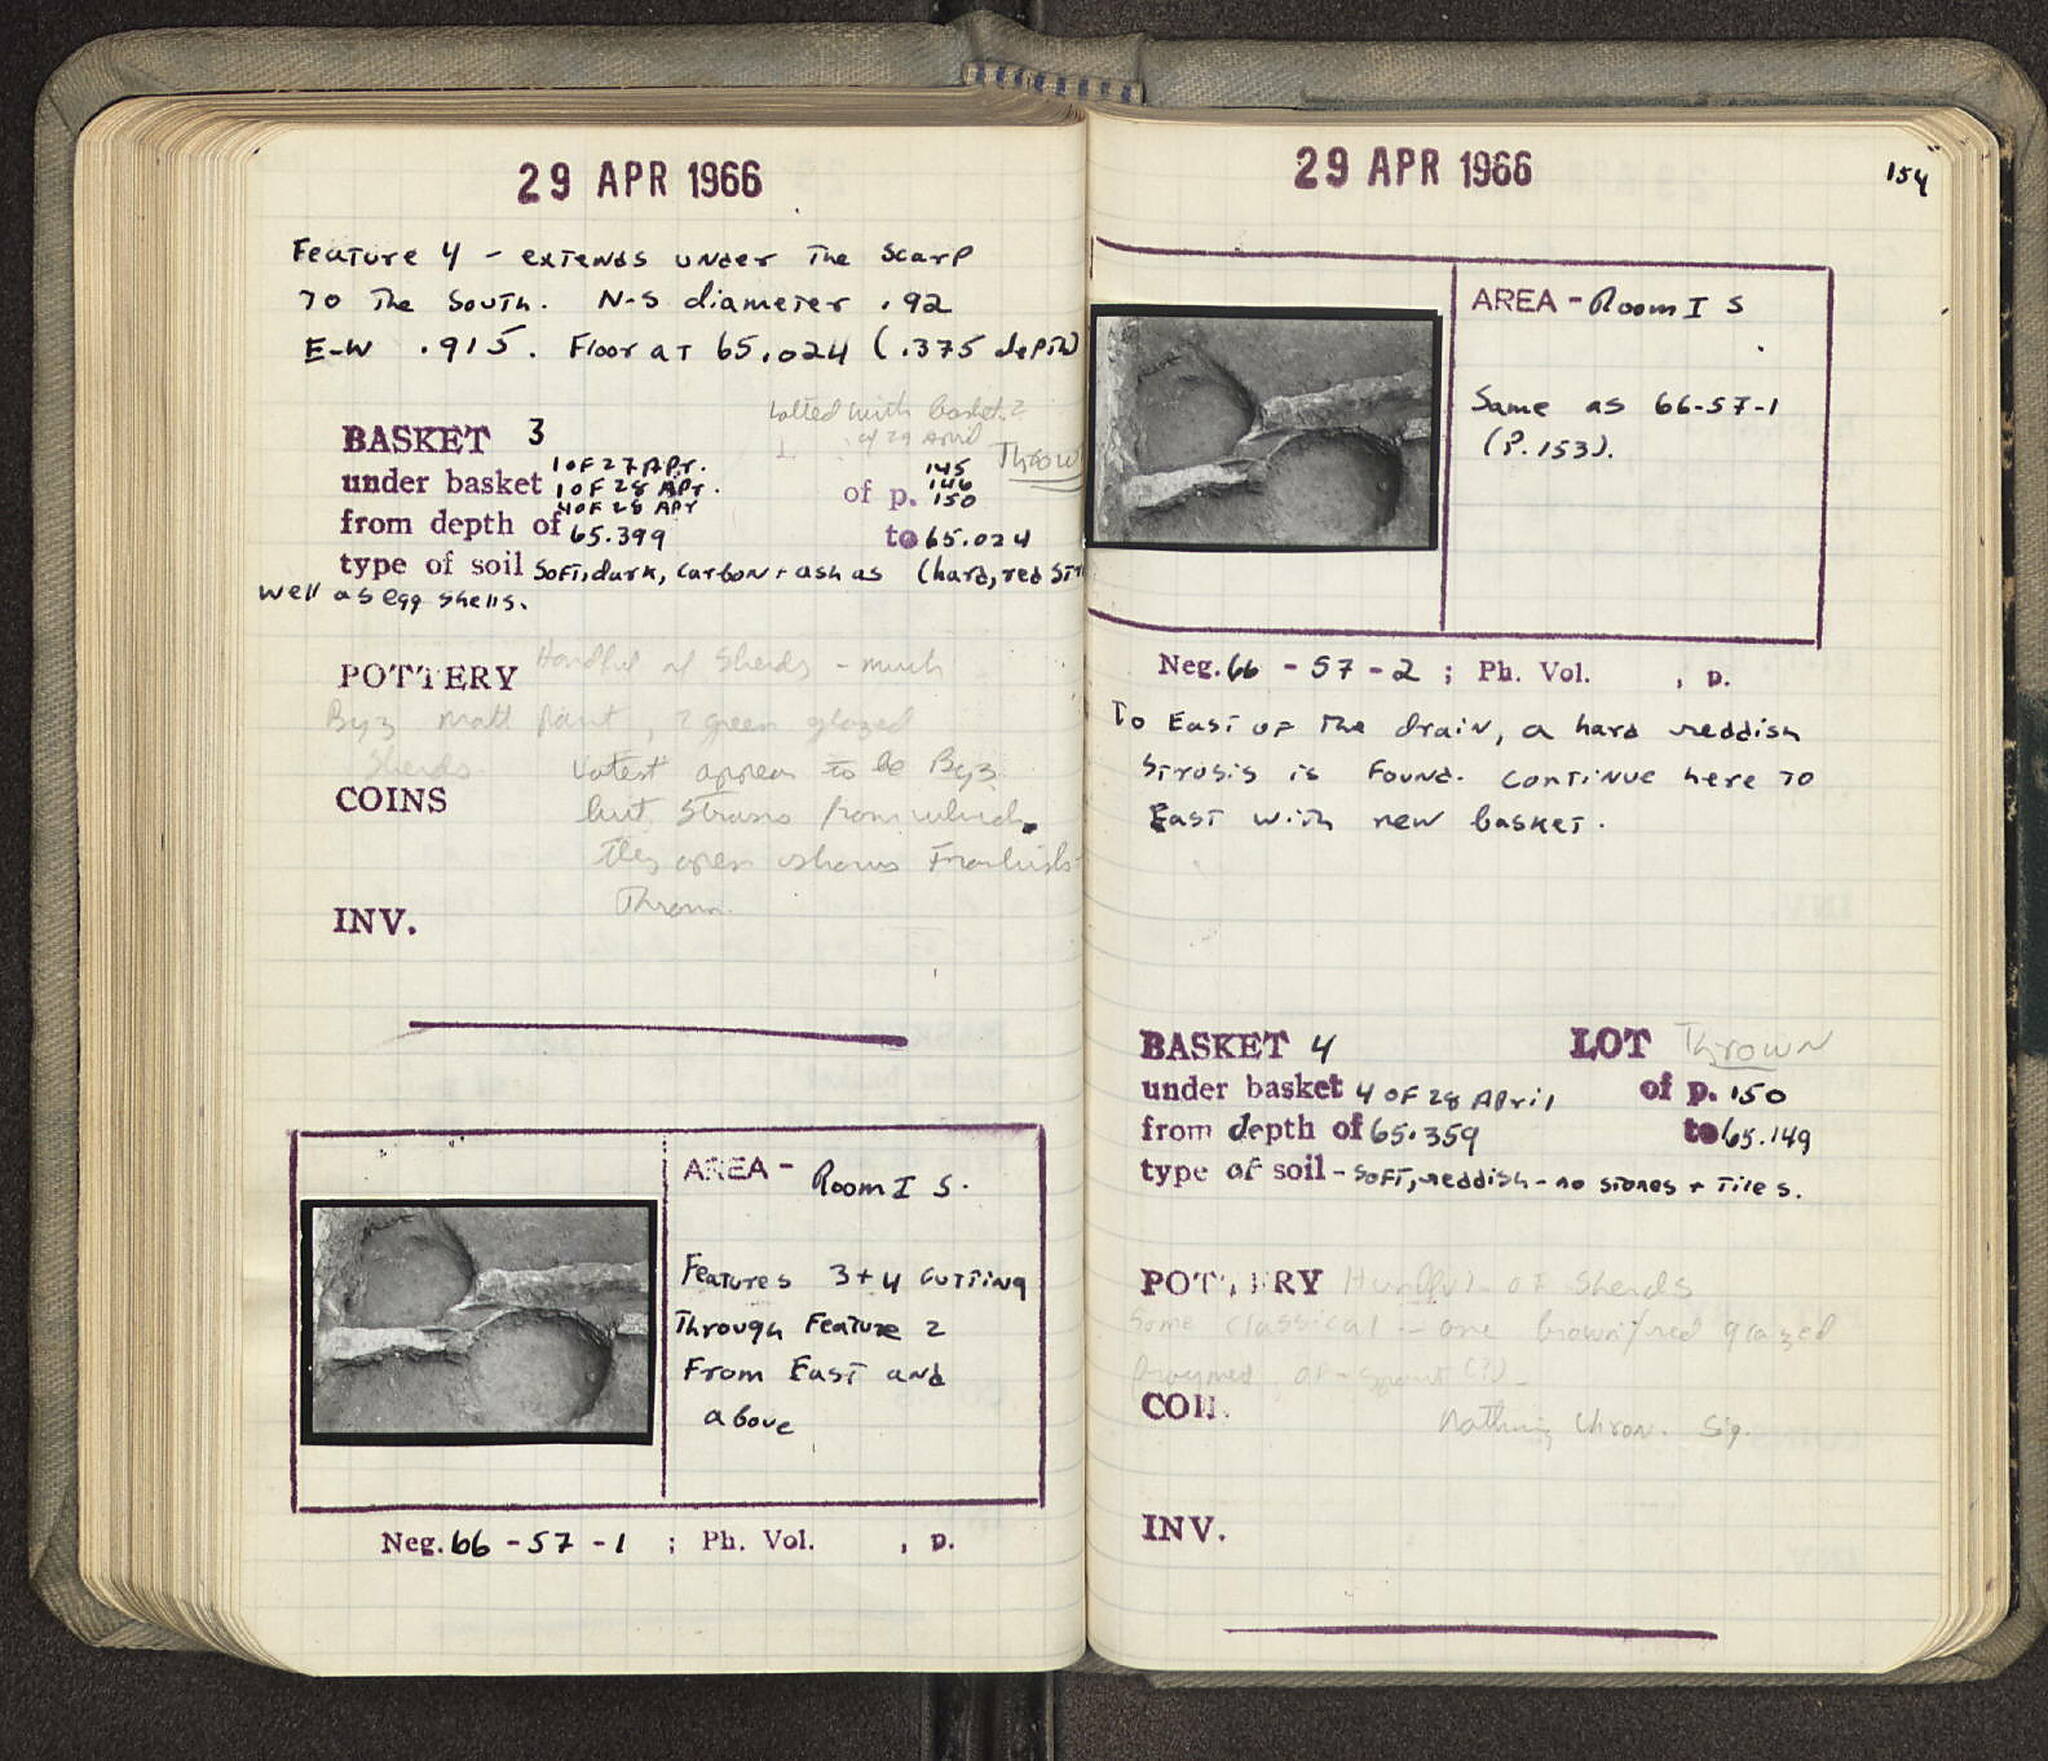 29 APR 1966
Feature 4 - extends under the scarp
to the south. N-S diameter .92
E-W .915. Floor at 65.024 (.375 depth)
Lotted with basket 2
of 29 April
BASKET 3
Thrown
under basket 1 of 27 Apr. 1 of 28 Apr. 4 of 28 Apr of p. 145 146 150
from depth of 65.399 to 65.024
type of soil soft, dark, carbon + ash as (hard, red
well as egg shells.
POTTERY Handful of sherds - much
Byz matt paint, 2 green glazed
sherds Latest appear to be Byz
COINS
but strosis from which
they open shows Frankish
Thrown.
INV.
AREA - Room I S.
Features 3 + 4 cutting
Through Feature 2
From East and
above
Neg. 66 - 57 - 1 ; Ph. Vol. , p.
29 APR 1966
154
AREA - Room I S
Same as 66-57-1
(P. 153).
Neg. 66 - 57 - 2 ; Ph. Vol. , p.
To East of the drain, a hard reddish
strosis is found. Continue here to
East with new basket.
BASKET 4 LOT Thrown
under basket 4 of 28 April of p. 150
from depth of 65.359 to 65.149
type of soil - soft, reddish - no stones + tiles.
POTTERY Handful of sherds
Some classical - one brown/red glazed
COIN
Nothing chron. sig.
INV.